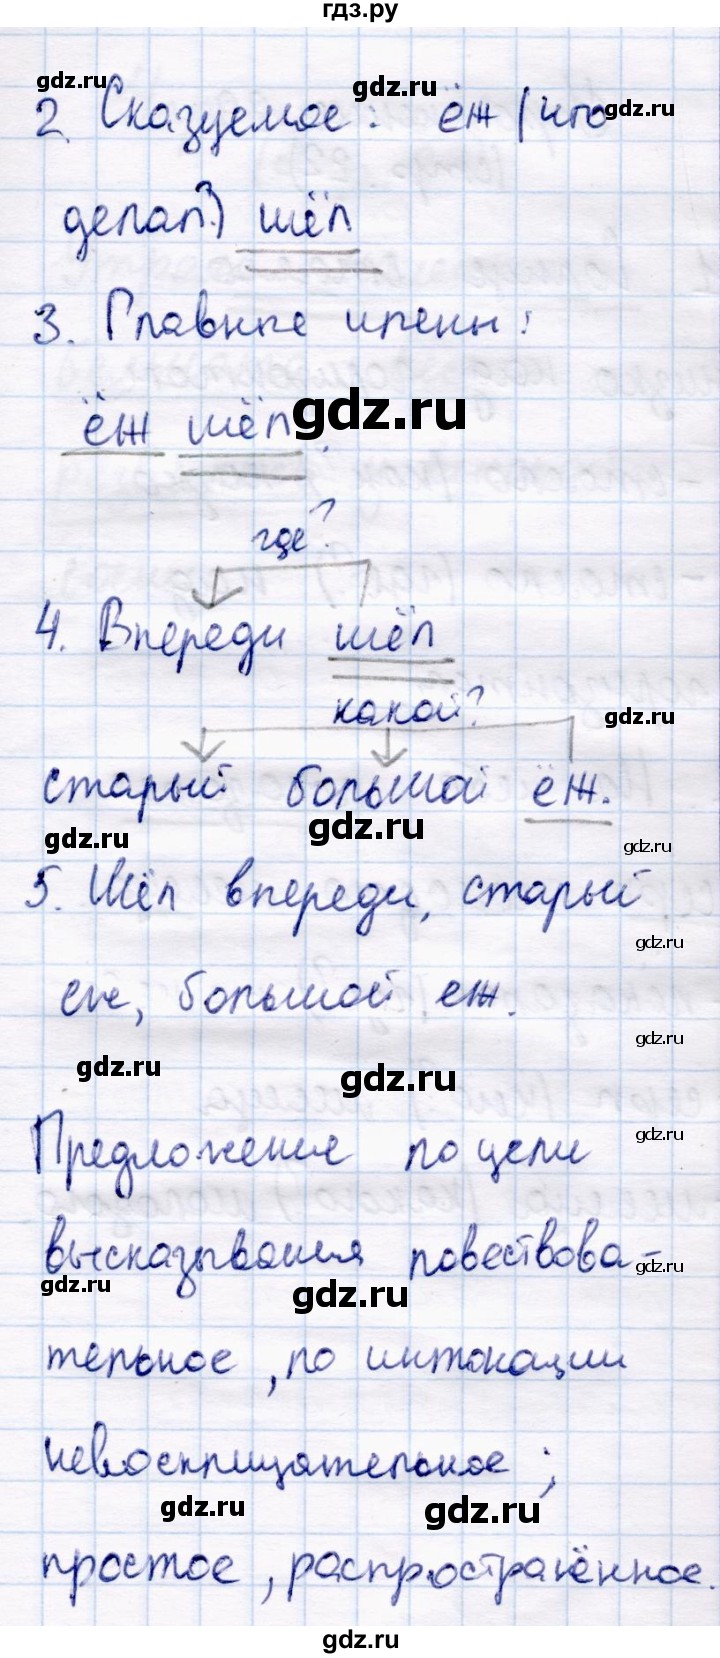 гдз.ру
gdz.ru gdz.ru gdz.ru
2. Сказуемое: ёж (что
делал?) шёл
3. Главные члены:
gdz.ru
ёж шёл.
где?
4. Впереди шёл
какой? gdz.ru
старый большой ёж.
gdz.ru gdz.ru gdz.ru
5. Шёл впереди, старый
gdz.ru
ёж, большой еж.
gdz.ru
gdz.ru gdz.ru
gdz.ru
Предложение по цели
высказывания повествова-
gdz.ru gdz.ru gdz.ru
тельное, по интонации
невосклицательное;
gdz.ru gdz.ru
простое, распространённое.
gdz.ru